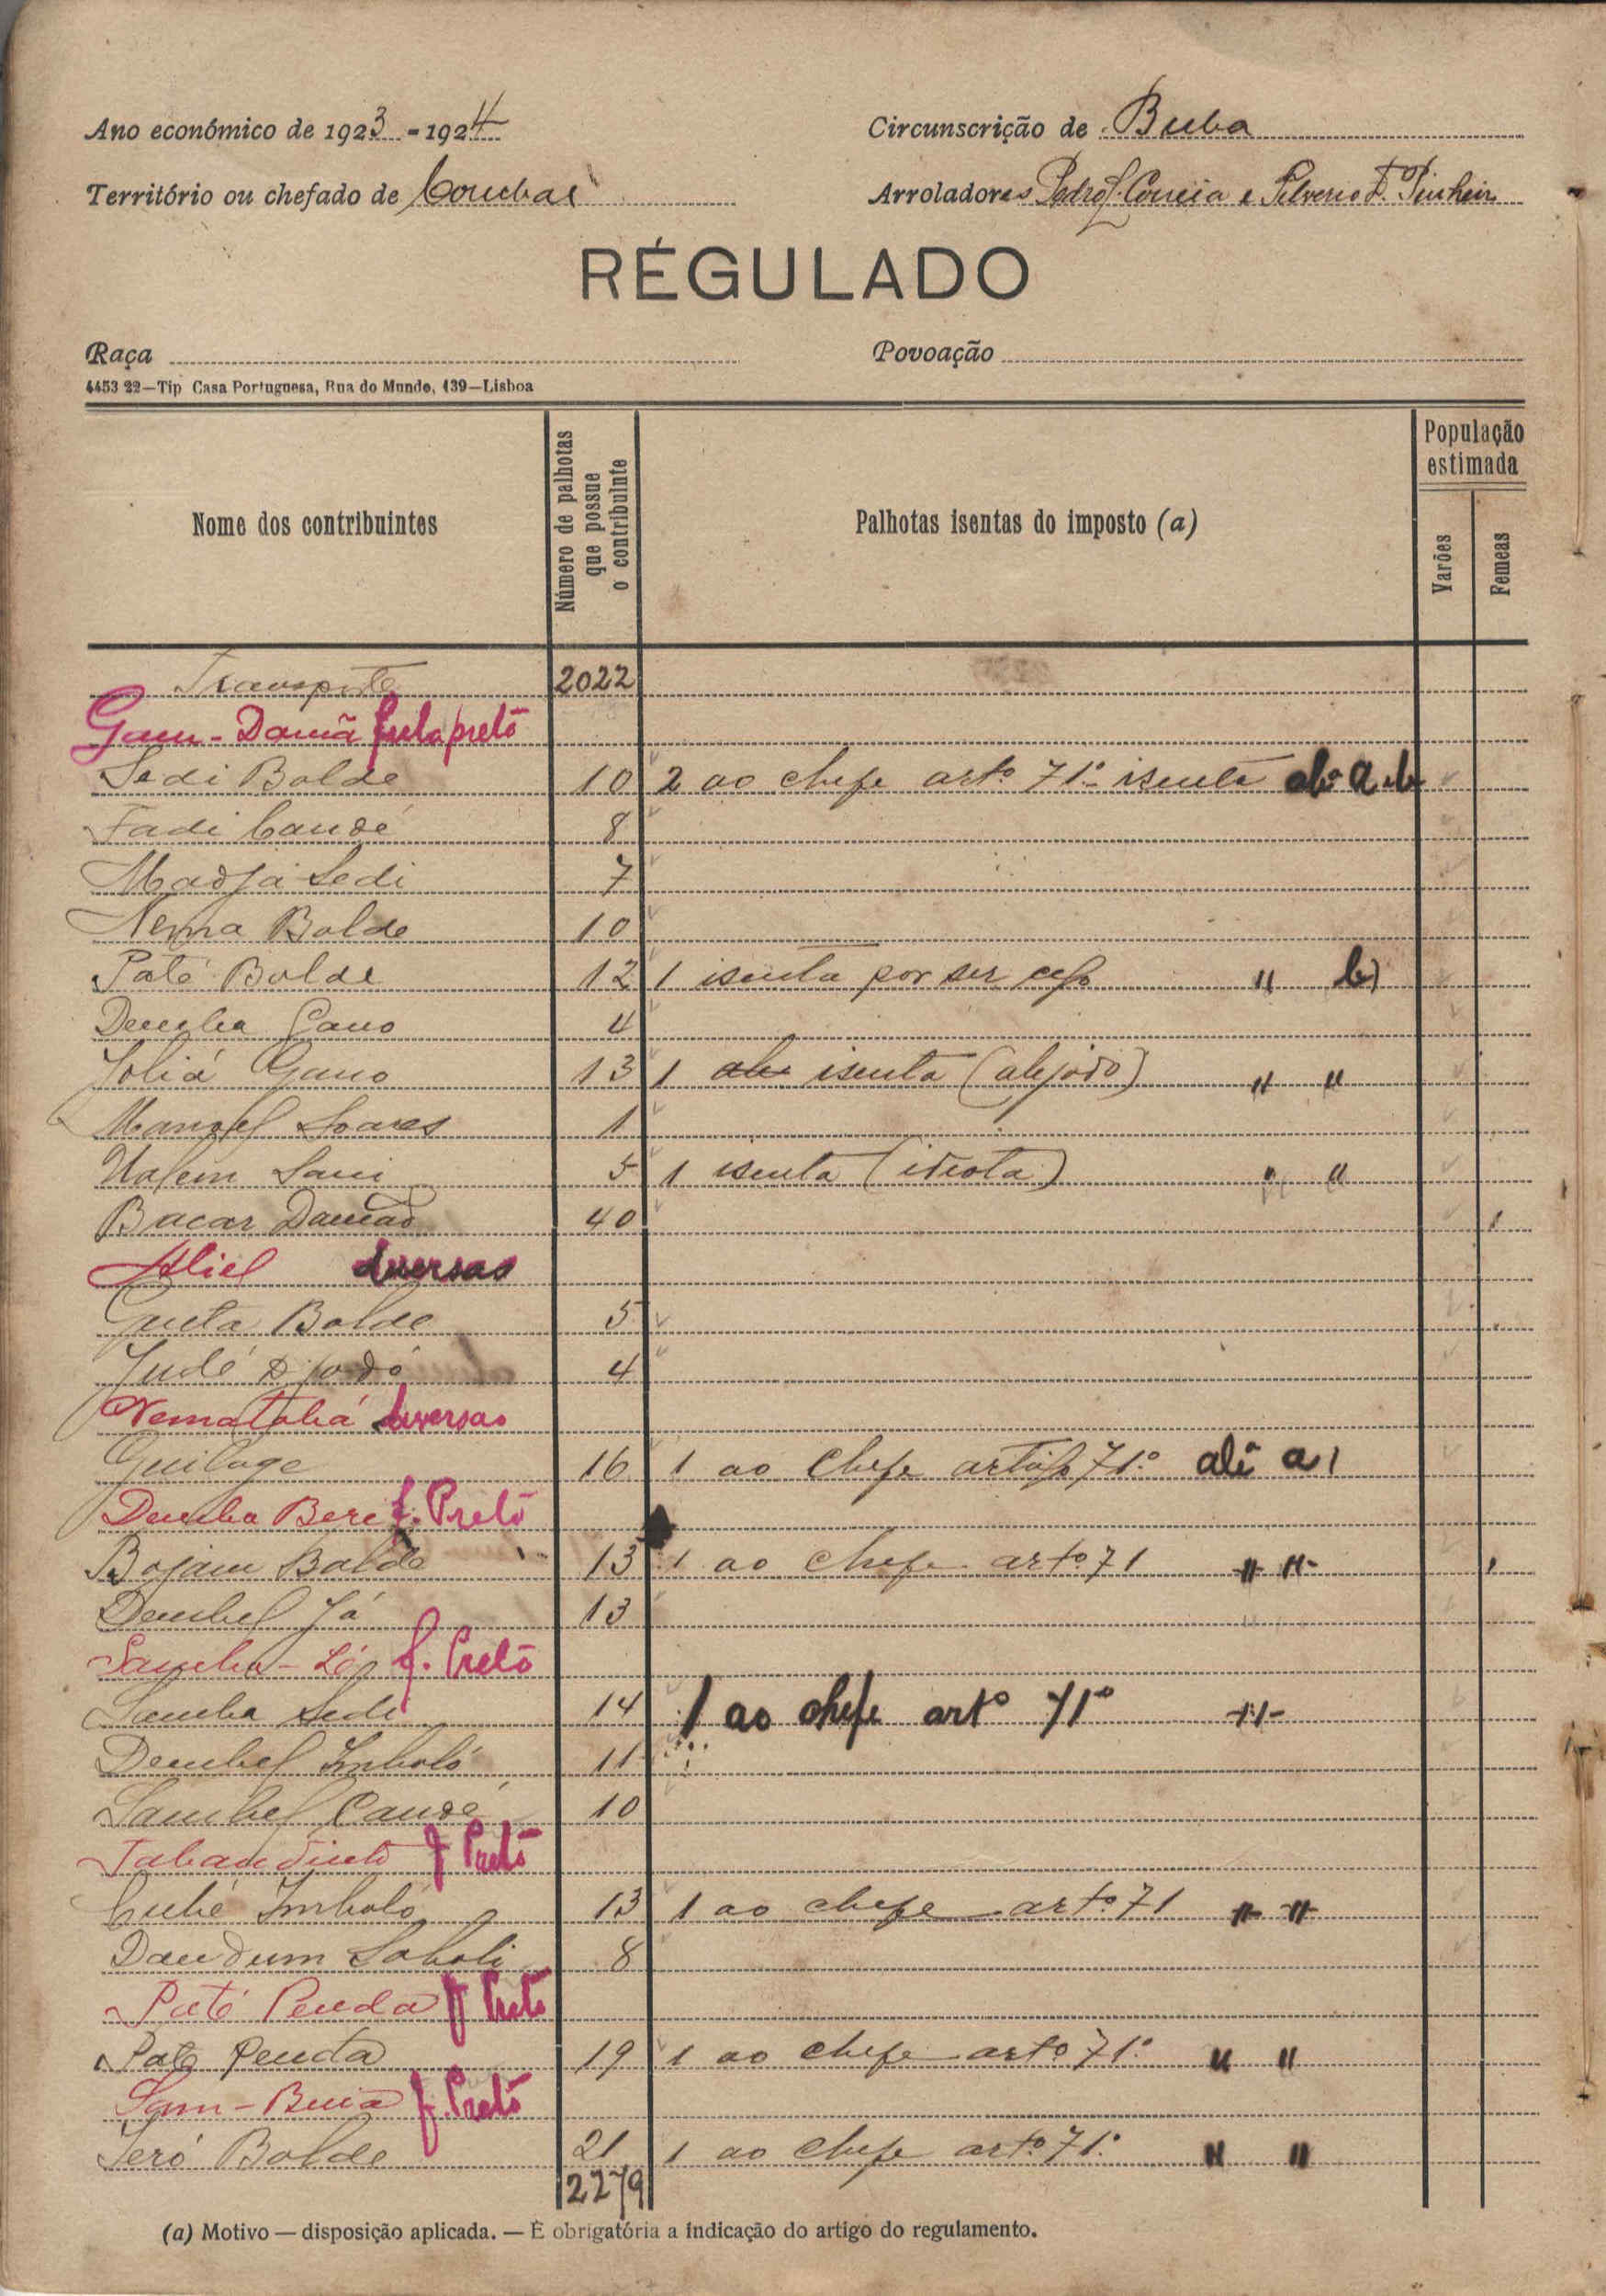 Ano económico de 1923 - 1924
Circunscrição de Buba
Território ou chefado de Corubal
Arroladores Pedro J. Correia e Silverio F. Pinheiro
RÉGULADO
Raça
Povoação
4453 22—Tip Casa Portuguesa, Rua do Mundo, 139—Lisboa
Nome dos contribuintes
Número de palhotas que possue o contribuinte
Palhotas isentas do imposto (a)
População estimada
Varões
Femeas
Transporte 2022
Gam - Damã fula preto
Sedi Balde 10 2 ao chefe artº 71º isenta alª a e b
Fadi Candé 8
Madja Sedi 7
Nema Balde 10
Paté Balde 12 1 isenta por ser cego " b)
Demba Gano 4
Joliá Gano 13 1 isenta (aleijado) " "
Manoel Soares 1
Sani 5 1 isenta (idiota) " "
Bacar Damão 40
Aliel diversas
Guta Balde 5
Judé Djodó 4
Nematabá diversas
Guilage 16 1 ao chefe artigo 71º alª a)
Demba Bere f. Preto
Bojam Balde 13 1 ao chefe artº 71 " "
Dembel Já 13
Samba - Ló f. Preto
Samba Sedi 14 1 ao chefe artº 71º -11-
Dembel Imbaló 11
Sambel Candé 10
Tabandinto f Preto
Cubé Imbaló 13 1 ao chefe artº 71 " "
Dandum Saboli 8
Paté Penda f Preto
Paté Penda 19 1 ao chefe artº 71º " "
Sam - Buia f. Preto
Seró Balde 21 1 ao chefe artº 71º " "
2279
(a) Motivo — disposição aplicada. — É obrigatória a indicação do artigo do regulamento.